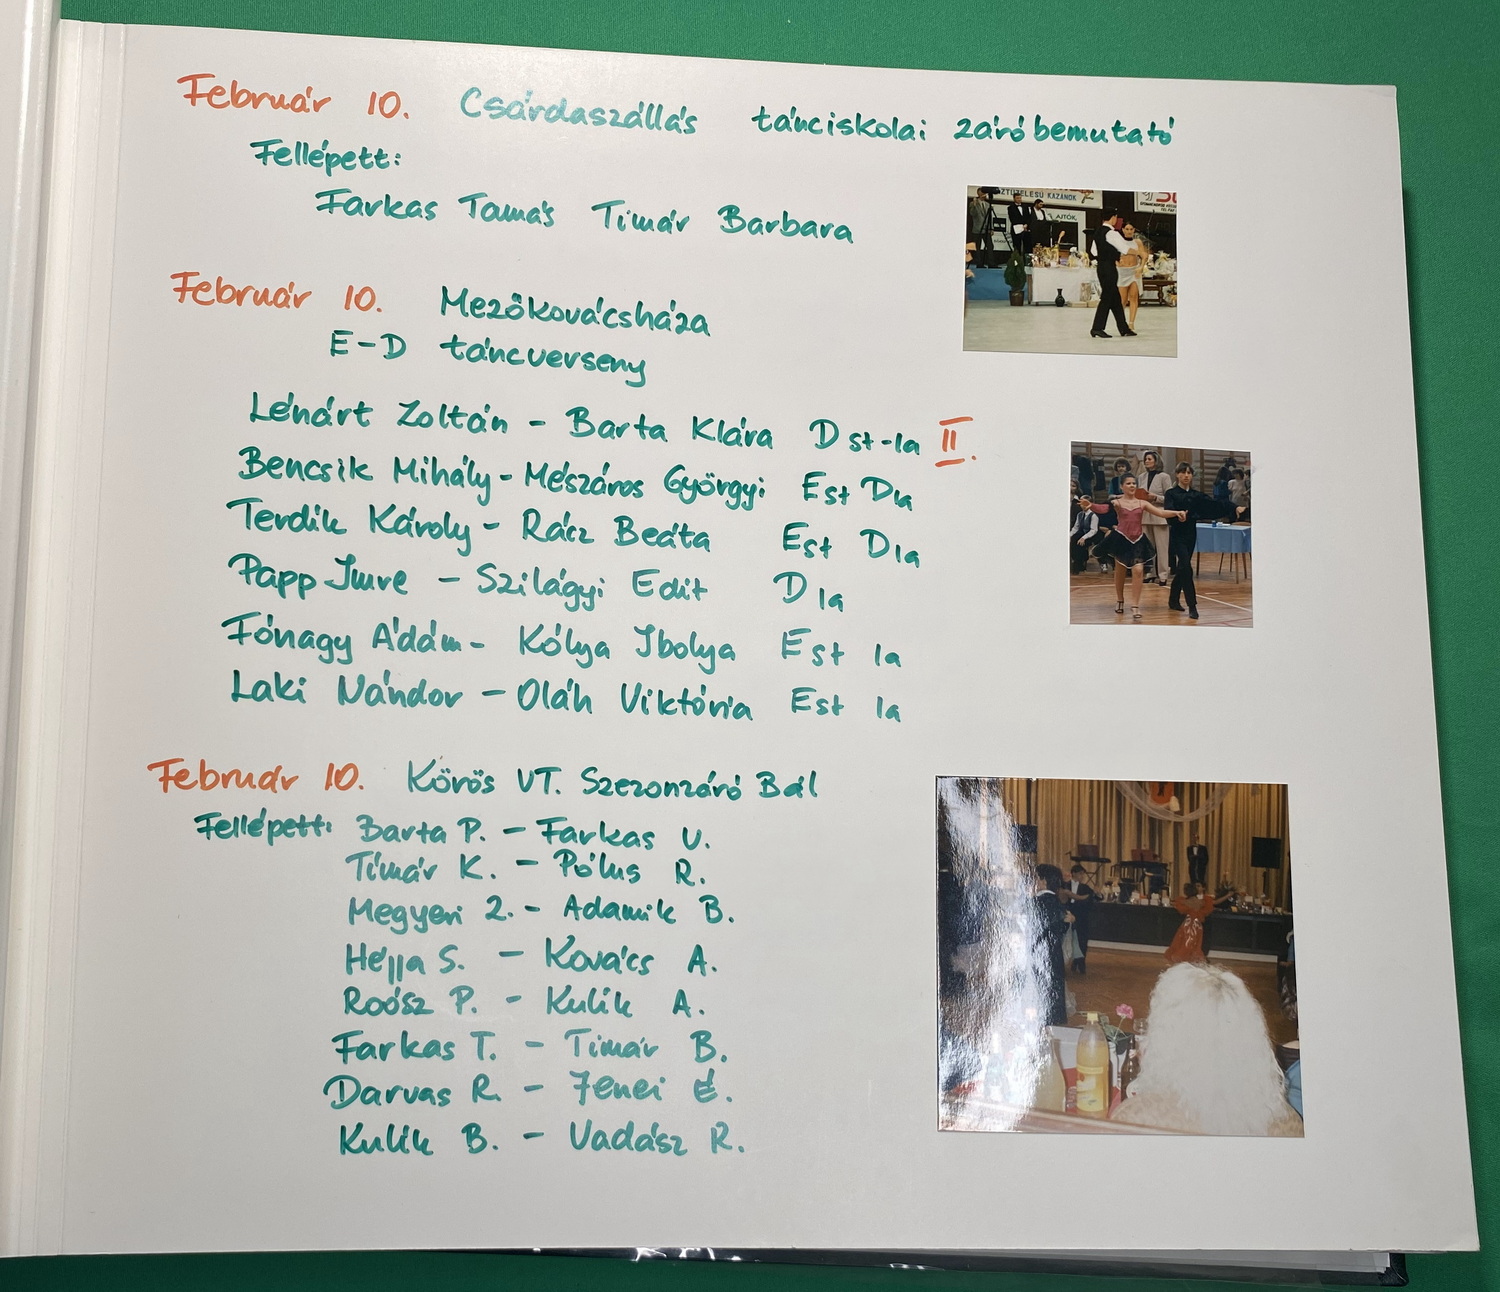 Február 10. Csárdaszállás tánciskolai záróbemutató
Fellépett:
Farkas Tamás Tímár Barbara
Február 10. Mezőkovácsháza
E-D táncverseny
Lénárt Zoltán - Barta Klára D st-la II.
Bencsik Mihály - Mészáros Györgyi Est Dla
Terdik Károly - Rácz Beáta Est Dla
Papp Imre - Szilágyi Edit D la
Fónagy Ádám - Kólya Ibolya Est la
Laki Nándor - Oláh Viktória Est la
Február 10. Körös VT. Szezonzáró Bál
Fellépett: Barta P. - Farkas V.
Tímár K. - Pólus R.
Megyeri Z. - Adamik B.
Héjja S. - Kovács A.
Roósz P. - Kulik A.
Farkas T. - Tímár B.
Darvas R. - Jenei É.
Kulik B. - Vadász R.
KAZÁNOK
AJTÓK,